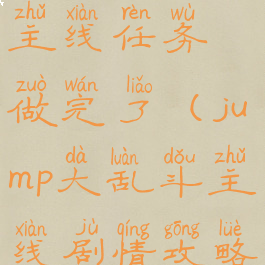 zhǔ xiàn rèn wù
主线任务
zuò wán liǎo
做完了（ju
dà luàn dǒu zhǔ
mp大乱斗主
xiàn jù qíng gōng lüè
线剧情攻略